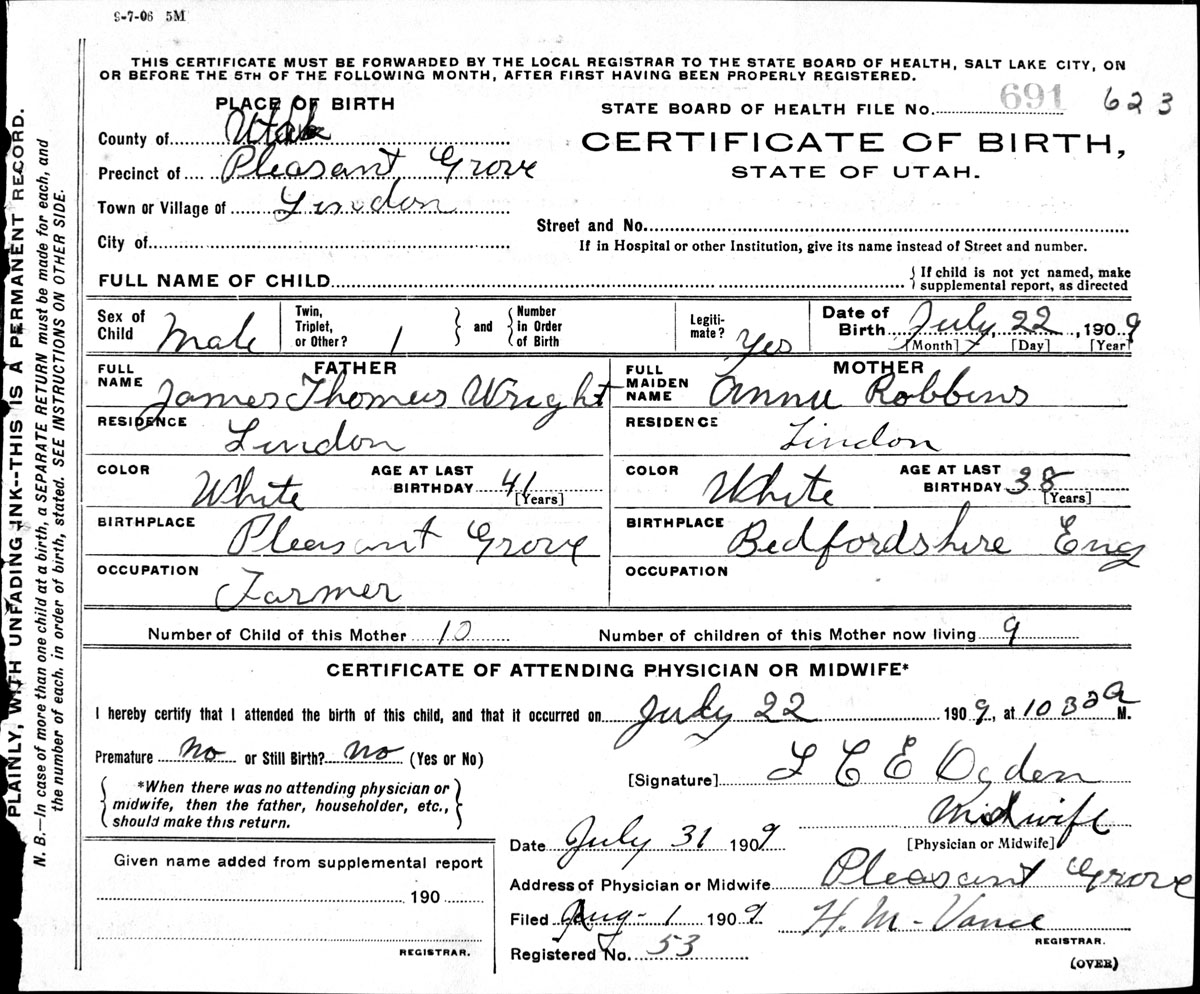 9-7-06 5M
THIS CERTIFICATE MUST BE FORWARDED BY THE LOCAL REGISTRAR TO THE STATE BOARD OF HEALTH, SALT LAKE CITY, ON
OR BEFORE THE 5TH OF THE FOLLOWING MONTH, AFTER FIRST HAVING BEEN PROPERLY REGISTERED.
PLACE OF BIRTH
County of Utah
Precinct of Pleasant Grove
Town or Village of Lindon
City of
STATE BOARD OF HEALTH FILE No. 691 623
CERTIFICATE OF BIRTH,
STATE OF UTAH.
Street and No.
If in Hospital or other Institution, give its name instead of Street and number.
FULL NAME OF CHILD { If child is not yet named, make
supplemental report, as directed
Sex of Child Male
Twin, Triplet, or Other? 1 } and { Number in Order of Birth
Legiti-mate? Yes
Date of Birth July 22, 1909
[Month] [Day] [Year]
FATHER
FULL NAME James Thomas Wright
RESIDENCE Lindon
COLOR White AGE AT LAST BIRTHDAY 41 [Years]
BIRTHPLACE Pleasant Grove
OCCUPATION Farmer
MOTHER
FULL MAIDEN NAME Annie Robbins
RESIDENCE Lindon
COLOR White AGE AT LAST BIRTHDAY 38 [Years]
BIRTHPLACE Bedfordshire Eng
OCCUPATION
Number of Child of this Mother 10 Number of children of this Mother now living 9
CERTIFICATE OF ATTENDING PHYSICIAN OR MIDWIFE*
I hereby certify that I attended the birth of this child, and that it occurred on July 22 1909, at 10 30 a M.
Premature No or Still Birth? No (Yes or No)
{ *When there was no attending physician or
midwife, then the father, householder, etc.,
should make this return. }
[Signature] L C E Ogden
Midwife
[Physician or Midwife]
Date July 31 1909
Address of Physician or Midwife Pleasant Grove
Filed Aug-1 1909 H. M-Vance
REGISTRAR.
Registered No. 53
(OVER)
Given name added from supplemental report
190
REGISTRAR.
PLAINLY, WITH UNFADING INK--THIS IS A PERMANENT RECORD.
N. B.—In case of more than one child at a birth, a SEPARATE RETURN must be made for each, and
the number of each, in order of birth, stated. SEE INSTRUCTIONS ON OTHER SIDE.